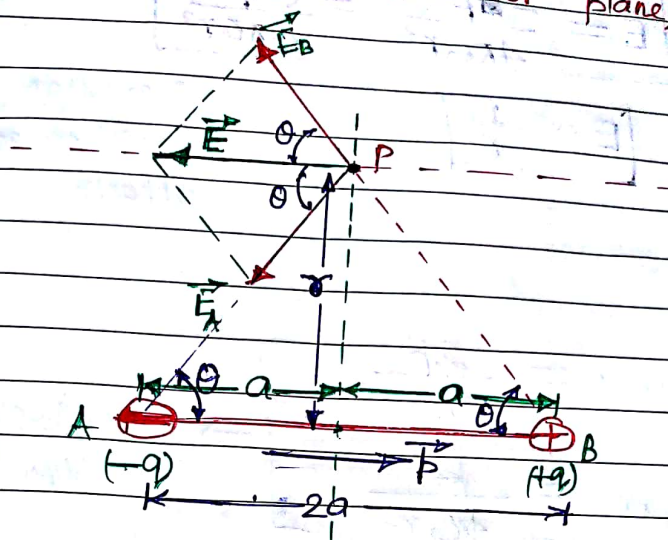 plane,
E⃗_B
E⃗
θ
P
θ
E⃗_A
r
θ
a
a
θ
A
B
(-q)
p⃗
(+q)
2a